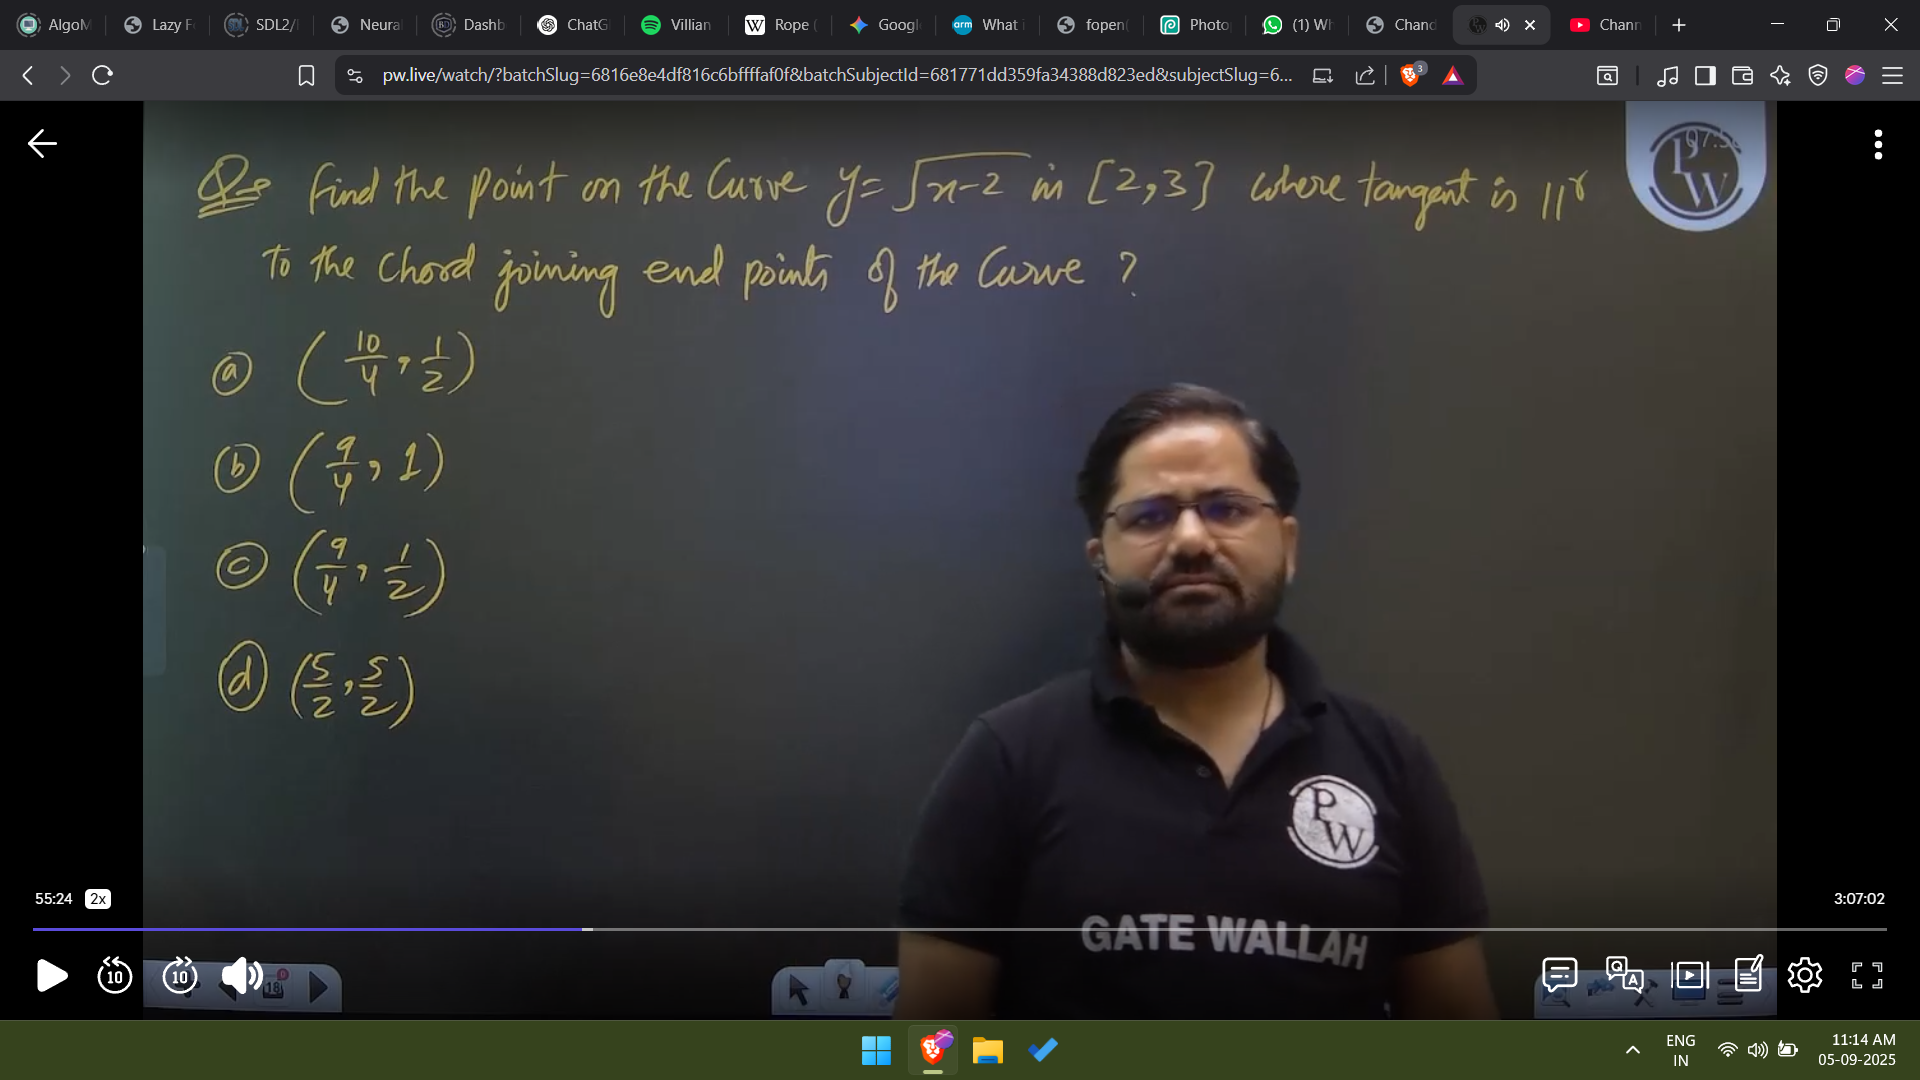 AlgoM
Lazy F
SDL2/
Neura
Dashb
ChatG
Villian
Rope (
Googl
What i
fopen(
Photo
(1) Wh
Chand
Chann
pw.live/watch/?batchSlug=6816e8e4df816c6bffffaf0f&batchSubjectId=681771dd359fa34388d823ed&subjectSlug=6...
3
07:5
PW
Q⇒ Find the point on the Curve y = √x-2 in [2,3] where tangent is ||r
to the chord joining end points of the Curve ?
(a) (10/4, 1/2)
(b) (9/4, 1)
(c) (9/4, 1/2)
(d) (5/2, 5/2)
PW
GATE WALLAH
55:24 2x
3:07:02
10
10
18
ENG
IN
11:14 AM
05-09-2025